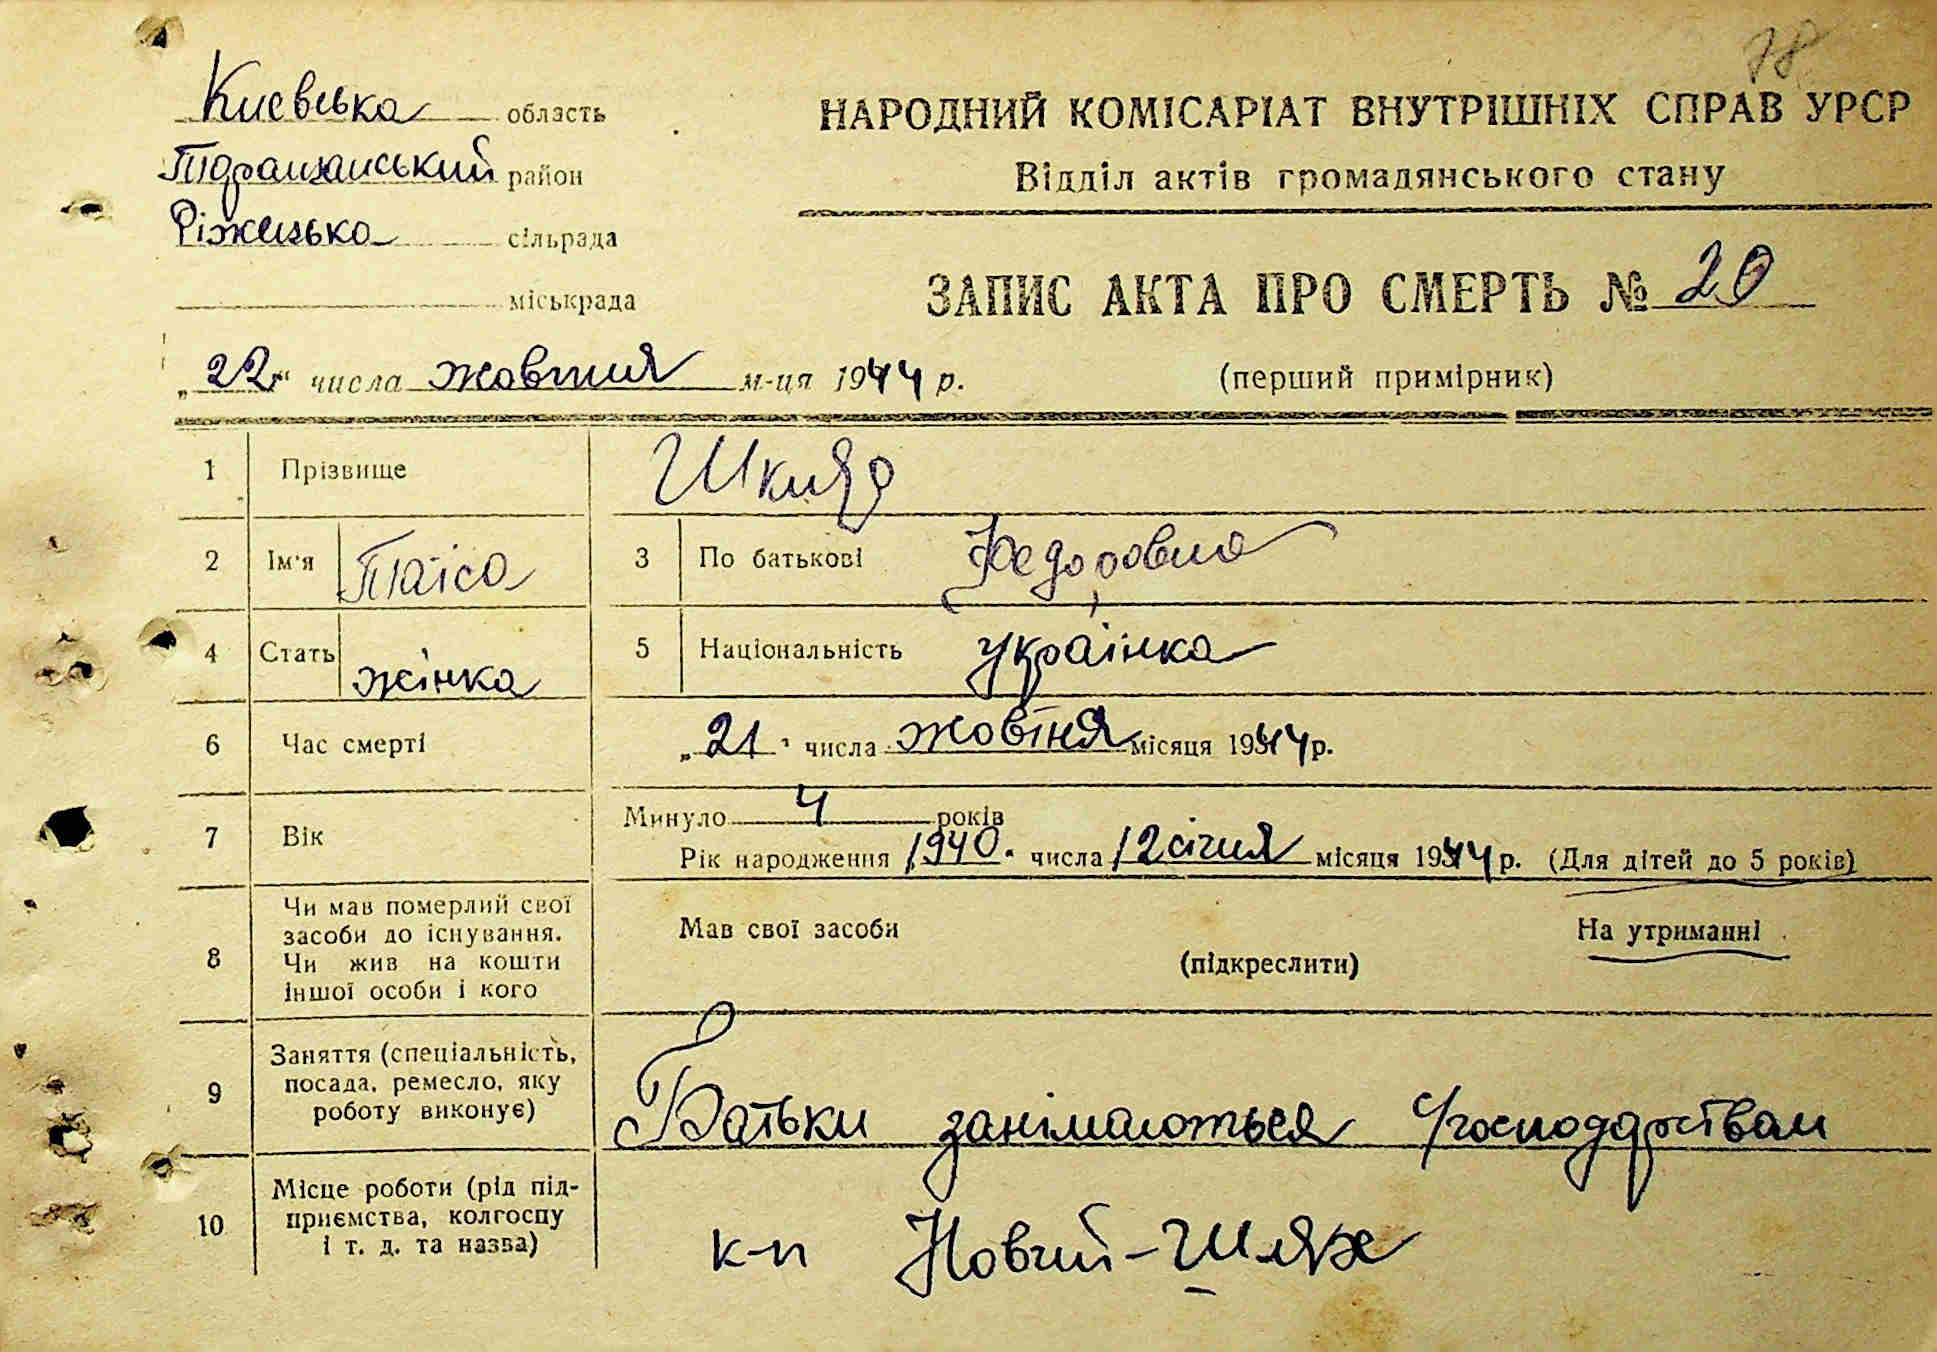 78
Киевська область
НАРОДНИЙ КОМІСАРІАТ ВНУТРІШНІХ СПРАВ УРСР
район
Відділ актів громадянського стану
сільрада
міськрада
ЗАПИС АКТА ПРО СМЕРТЬ № 20
„22" числа жовтня м-ця 1944 р.
(перший примірник)
1 Прізвище
2 Ім'я Таїса 3 По батькові Федоровна
4 Стать жінка 5 Національність українка
6 Час смерті „21" числа жовтня місяця 1944 р.
7 Вік Минуло 4 років
Рік народження 1940. числа 12 січня місяця 1944 р. (Для дітей до 5 років)
8 Чи мав померлий свої засоби до існування. Чи жив на кошти іншої особи і кого
Мав свої засоби (підкреслити) На утриманні
9 Заняття (спеціальність, посада, ремесло, яку роботу виконує) Батьки занімаються с/господарством
10 Місце роботи (рід підприємства, колгоспу і т. д. та назва) к-п Новий-Шлях